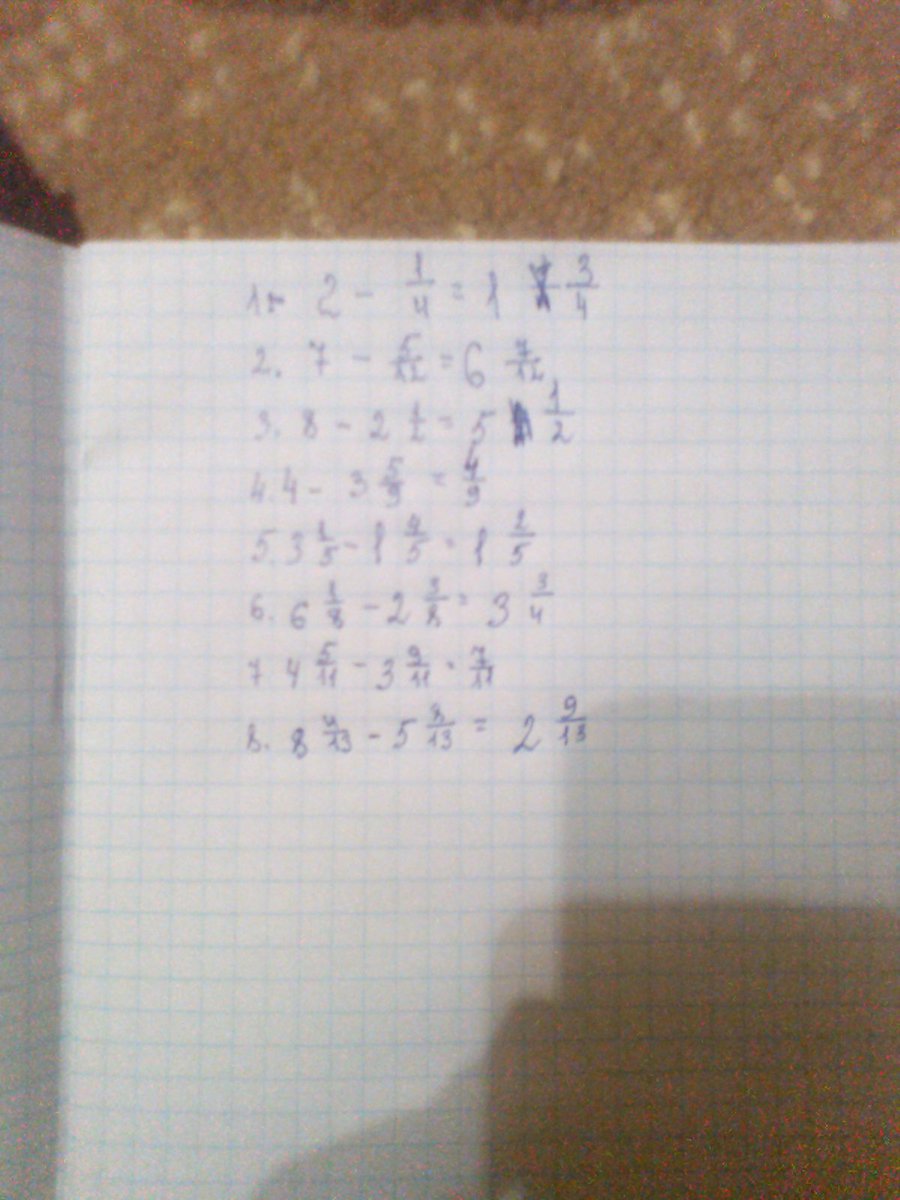 1. 2 - 1/4 = 1 3/4
2. 7 - 5/12 = 6 7/12
3. 8 - 2 1/2 = 5 1/2
4. 4 - 3 5/9 = 4/9
5. 3 1/5 - 1 4/5 = 1 2/5
6. 6 1/8 - 2 3/8 = 3 3/4
7 4 5/11 - 3 9/11 = 7/11
8. 8 4/13 - 5 8/13 = 2 9/13